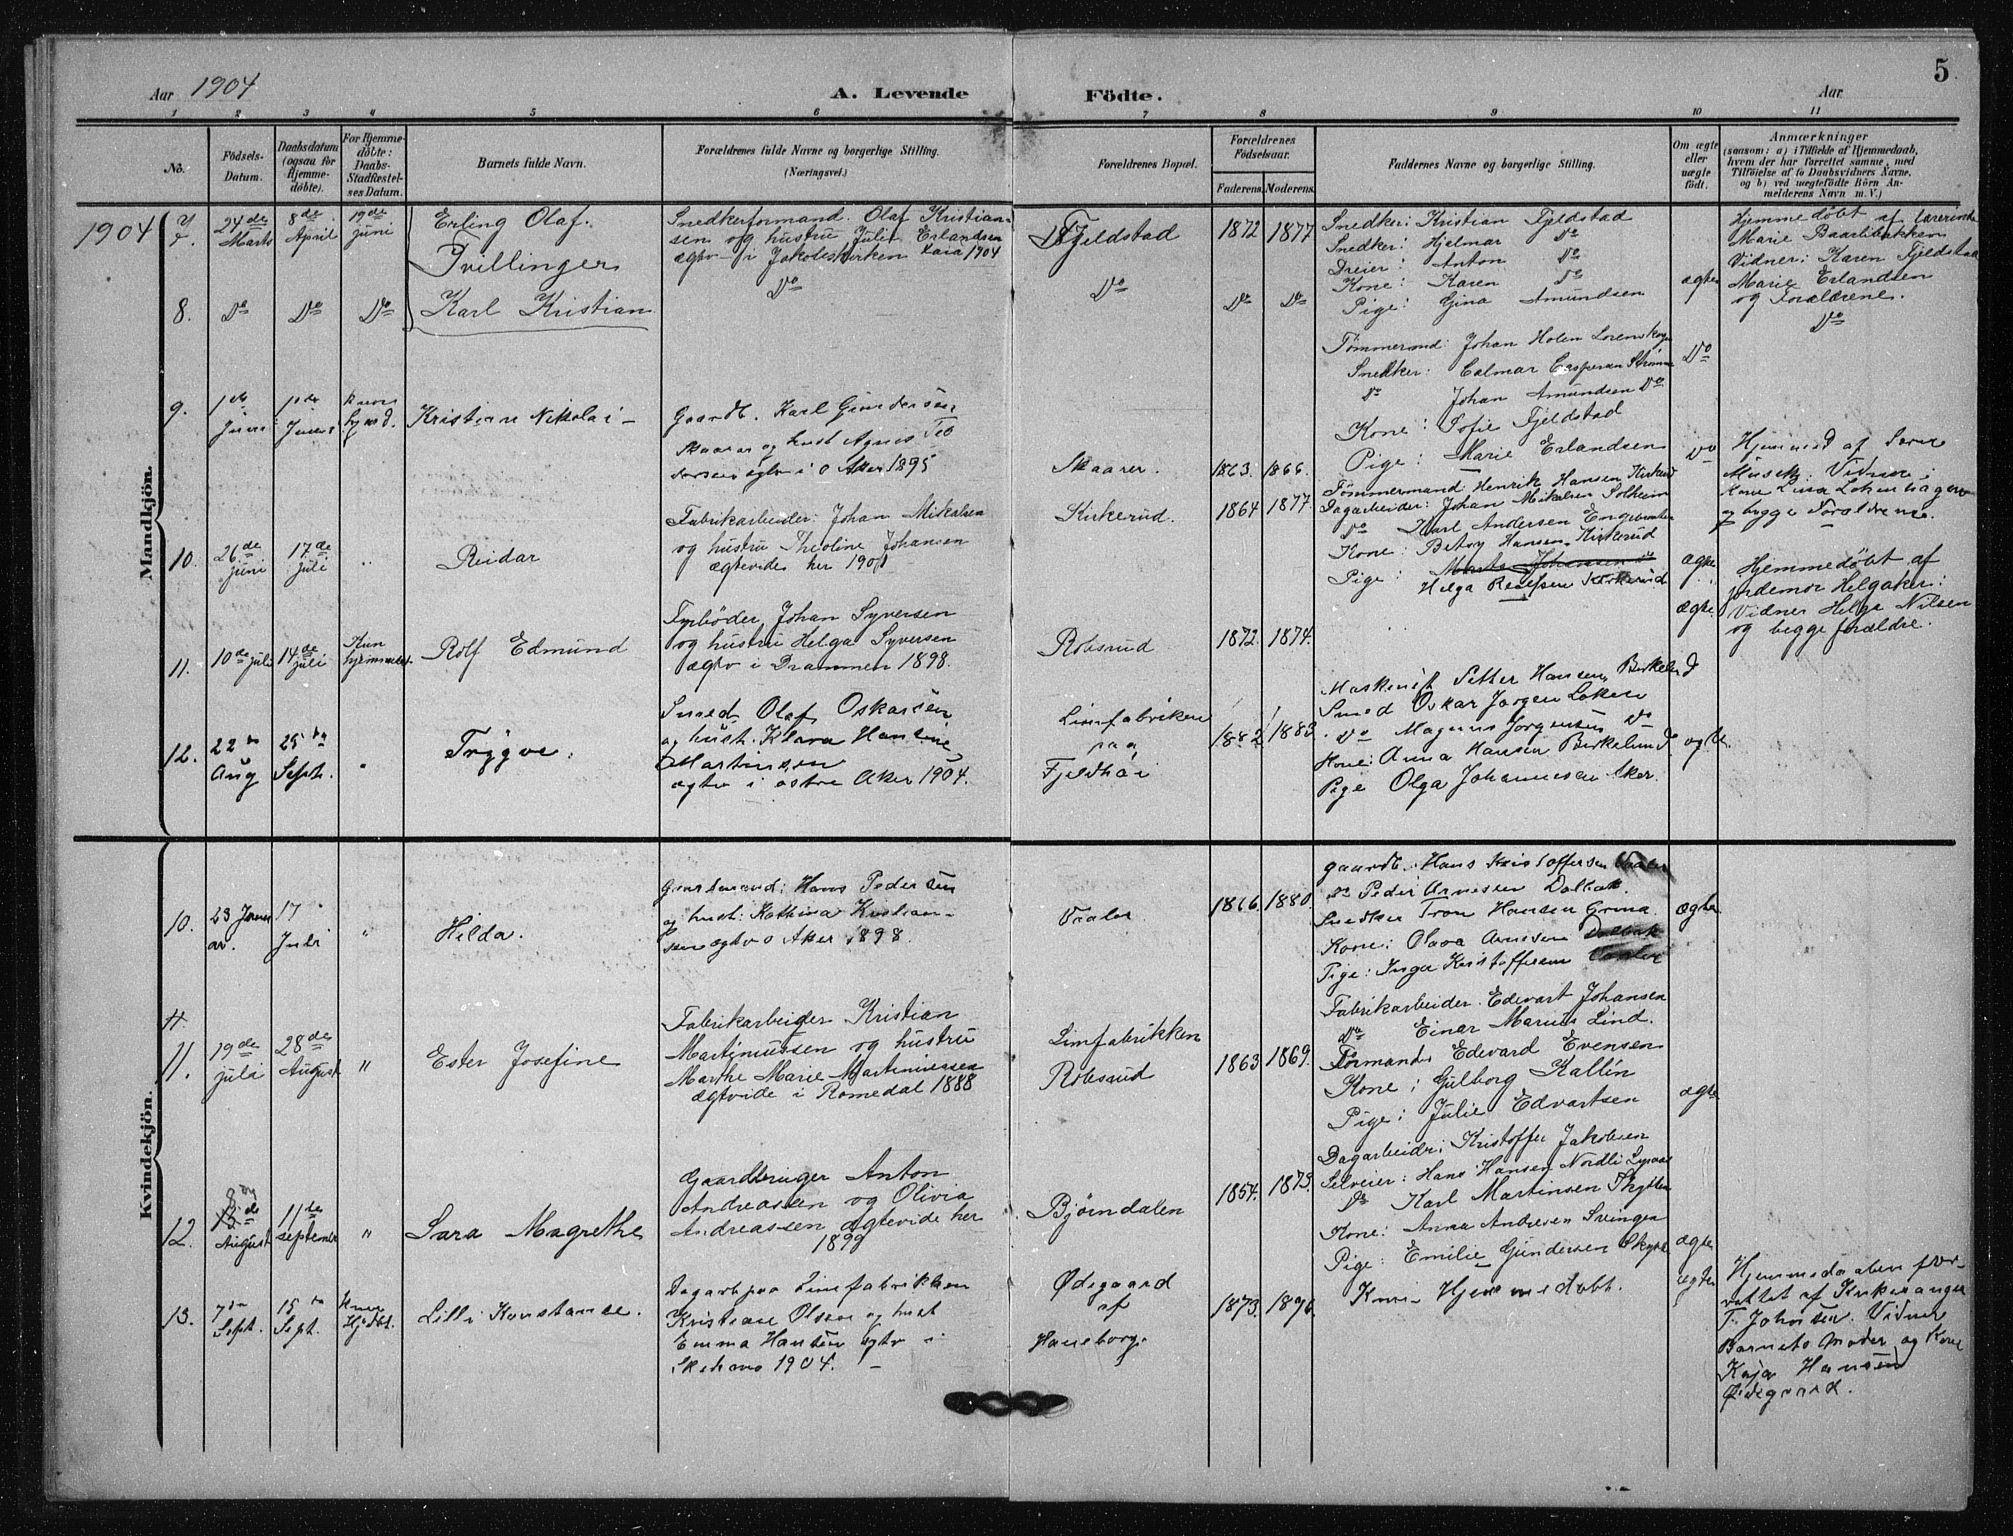 Aar 1904
A. Levende Födte.
Aar
5
1 2 3 4 5 6 7 8 9 10 11
No.
Födsels-
Datum.
Daabsdatum
(ogsaa for
Hjemme-
döbte).
For Hjemme-
döbte:
Daabs-
Stadfæstel-
ses Datum.
Barnets fulde Navn.
Forældrenes fulde Navne og borgerlige Stilling.
(Næringsvei.)
Forældrenes Bopæl.
Forældrenes
Födselsaar.
Faderens. Moderens.
Faddernes Navne og borgerlige Stilling.
Om ægte
eller
uægte
födt.
Anmærkninger
(saasom: a) i Tilfælde af Hjemmedaab,
hvem der har forrettet samme, med
Tilföielse af to Daabsvidners Navne,
og b) ved uægtefödte Börn An-
melderens Navn m. V.)
Mandkjön.
1904
7.
24de
Marts
8de
April
19de
juni
Erling Olaf.
Tvillinger
Snedkerformand. Olaf Kristian-
sen og hustru Julie Erlandsen
ægtv i Jakobskirken 1904
Fjeldstad
1872 1877
Snedker: Kristian Fjeldstad
Snedker: Hjelmar Do
Dreier: Anton Do
Kone: Karen Do
Pige: Gina Amundsen
ægte
Hjemmedöbt af lærerinde
Marie Baarlibakken
Vidner: Karen Fjeldstad
Marie Erlandsen
og Forældrene.
8. Do Do Do
Karl Kristian
Do
Do
Do Do
Tømmermd: Johan Holen Lorenskog
Snedker: Calmar Caspersen Strømm
Do Johan Amundsen Do
Kone: Sofie Fjeldstad
Pige: Marie Erlandsen
Do
Do
9.
1ste
Juni
1ste
Juni
Kristian Nikolai
Gaardb. Karl Gundersen
Skaarer og hust Agnes Teo
dorsen ægtv i ø Aker 1895
Skaarer.
1863. 1866.
Do
Hjemmed af
Vidner:
Kone Lina
og begge Forældrene.
10.
26de
juni
17de
juli
"
Reidar
Fabrikarbeider: Johan Mikalsen
og hustru Theoline Johansen
ægtevidet her 1901
Kirkerud.
1864 1877
Tømmermand: Henrik Hansen Kirkerud
Dagarbeider: Johan Mikalsen Solheim
Do Karl Andersen
Kone: Betsy Hansen Kirkerud
Pige:
Helga Kirkerud
ægte
11.
10de juli
14de
juli
Kun
hjemmedøbt
Rolf Edmund
Fyrbøder, Johan Syversen
og hustru Helga Syversen
ægtv i Drammen 1898.
Robsrud
1872. 1874.
ægte
Hjemmedøbt af
jordemor Helgaker:
Vidner Helga Nilsen
og begge forældre.
12.
22de
Aug
25de
Septb.
"
Trygve.
Smed, Olaf Oskarsen
og hust. Klara Hansine
Martinsen
ægtv i østre Aker 1904.
Limfabriken
paa
Fjeldhøi
1882 1883
Maskinist Petter Hansen, Birkelund
Smed Oskar Jørgen Løken
Do Magnus Jørgensen Do
Kone: Anna Hansen Birkelund
Pige Olga Johannesen Aker.
ægte.
Kvindekjön.
10.
23 Janu
ar.
17
Juli
"
Hilda.
Gaardmand: Hans Pedersen
og hust: Kathina Kristian-
sen ægtv ø Aker 1898.
Vaaler
1866. 1880
Gaardb. Hans Kristoffersen Vaaler
Do Peder Arnesen Dalbak.
Snedker Tron Hansen Grina.
Kone: Olava Arnesen Dalbak
Pige: Inga Kristoffersen Vaaler
ægte
11.
11.
19de
juli
28de
August
"
Ester Josefine
Fabrikarbeider Kristian
Martinussen og hustru
Marthe Marie Martinussen
ægtvidt i Romedal 1888
Limfabrikken
Robsrud
1863 1869.
Fabrikarbeider. Edvart Johansen
Do Einar Marius Lind.
Formand: Edevard Evensen
Kone: Gulborg Kallin
Pige: Julie Edvartsen
ægte
12.
8de
August
11te
september
"
Sara Magrethe
Gaardbruger Anton
Andreassen og Olivia
Andreassen ægtevidt her
1899
Bjørndalen
1854. 1873.
Dagarbeider: Kristoffer Jakobsen
Selveier: Hans Hansen Nordli
Do Karl Martinsen
Kone: Anna Andresen Svingen
Pige: Emilie Gundersen
ægte
13.
7de
Sept.
15de
Sept.
Lilli Konstanse.
Dagarb. paa Limfabrikken
Kristian Olsen og hust
Emma Hansen ægtv i
1904.
Ødegaard
af
Haneborg.
1873. 1876.
Kun Hjemmedøbt.
ægte
Hjemmedaaben for-
rettet af Kirkesanger
T. Johnsen. Vidner
Barnets Moder og Kone
Kaja Hansen
Ødegaard.